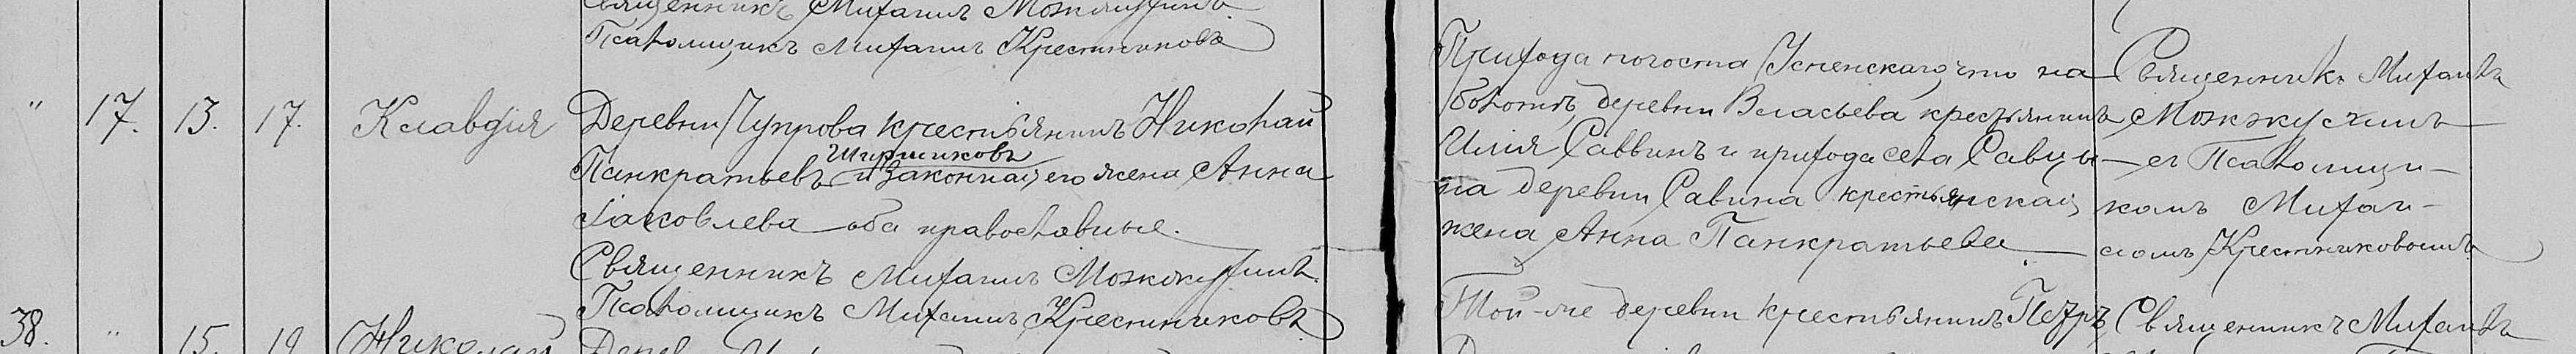 Священникъ Михаилъ Можжухинъ
Псаломщикъ Михаилъ Крестниковъ
" 17. 13. 17. Клавдия
Деревни Чупрова крестьянинъ Николай
Ширшиковъ
Панкратьевъ и законная его жена Анна
Іаковлева оба православные.
Священникъ Михаилъ Можжухинъ.
Псаломщикъ Михаилъ Крестниковъ
38. " 15. 19 Николай
Дерев
Прихода погоста Успенскаго, что на
болотѣ, деревни Власьева крестьянинъ
Илія Саввинъ и прихода села Савцы
на деревни Савина крестьянская
жена Анна Панкратьева
Той-же деревни крестьянинъ Петръ
Священникъ Михаилъ
Можжухинъ
съ Псаломщи-
комъ Михаи-
ломъ Крестниковымъ
Священникъ Михаилъ